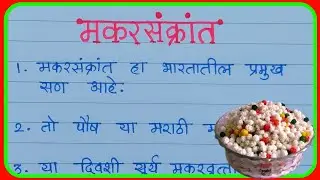 मकरसंक्रांत
1. मकरसंक्रांत हा भारतातील प्रमुख
सण आहे.
2. तो पौष या मराठी
3. या दिवशी सूर्य